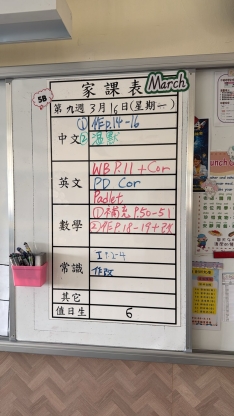 家課表
March
5B
第九週3月16日(星期一)
中文
①作P.14-16
②溫默
英文
WB P.11 + Cor
PD Cor
Padlet
數學
①補充P.50-51
常識
作改
其它
值日生
6